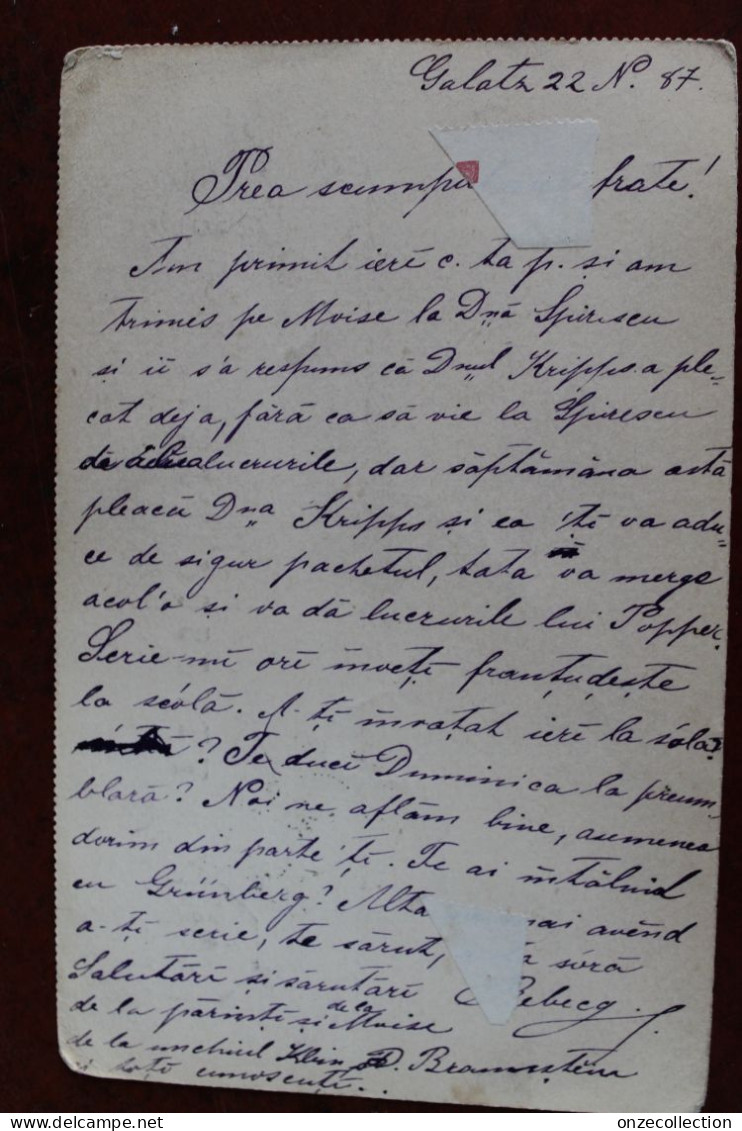 Galatz 22 N. 87.
Prea scump frate!
Am primit ierĭ c. ta p. și am
trimis pe Moise la Dnă Spirescu
și iĭ s'a respuns că Dnul Kripps a ple-
cat deja, fără ca să vie la Spirescu
lucrurile, dar săptămâna asta
pleacă Dna Kripps și ea 'țĭ va adu-
ce de sigur pachetul, tata va merge
acol'o și va dă lucrurile lui Popper.
Scrie-mĭ orĭ învețĭ franțuḑește
la scólă. A-țĭ învățat ierĭ la
? Te ducĭ Duminica la preum-
blară? Noi ne aflăm bine, asemenea
dorim din parte 'țĭ. Te ai întâlnid
cu Grünberg? Alta mai avênd
a-țĭ scrie, te sărut, tă soră
Salutărĭ și sărutărĭ Rebecq.
de la părințĭ și de la Moise
de la unchiul Klein, D. Braunștein
și toțĭ cunoscuțĭ...
onzecollection